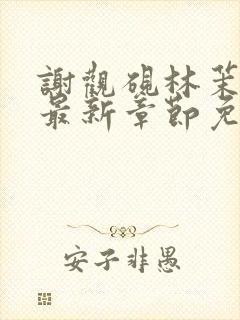 謝觀硯林茉
最新章節免
安子非愚